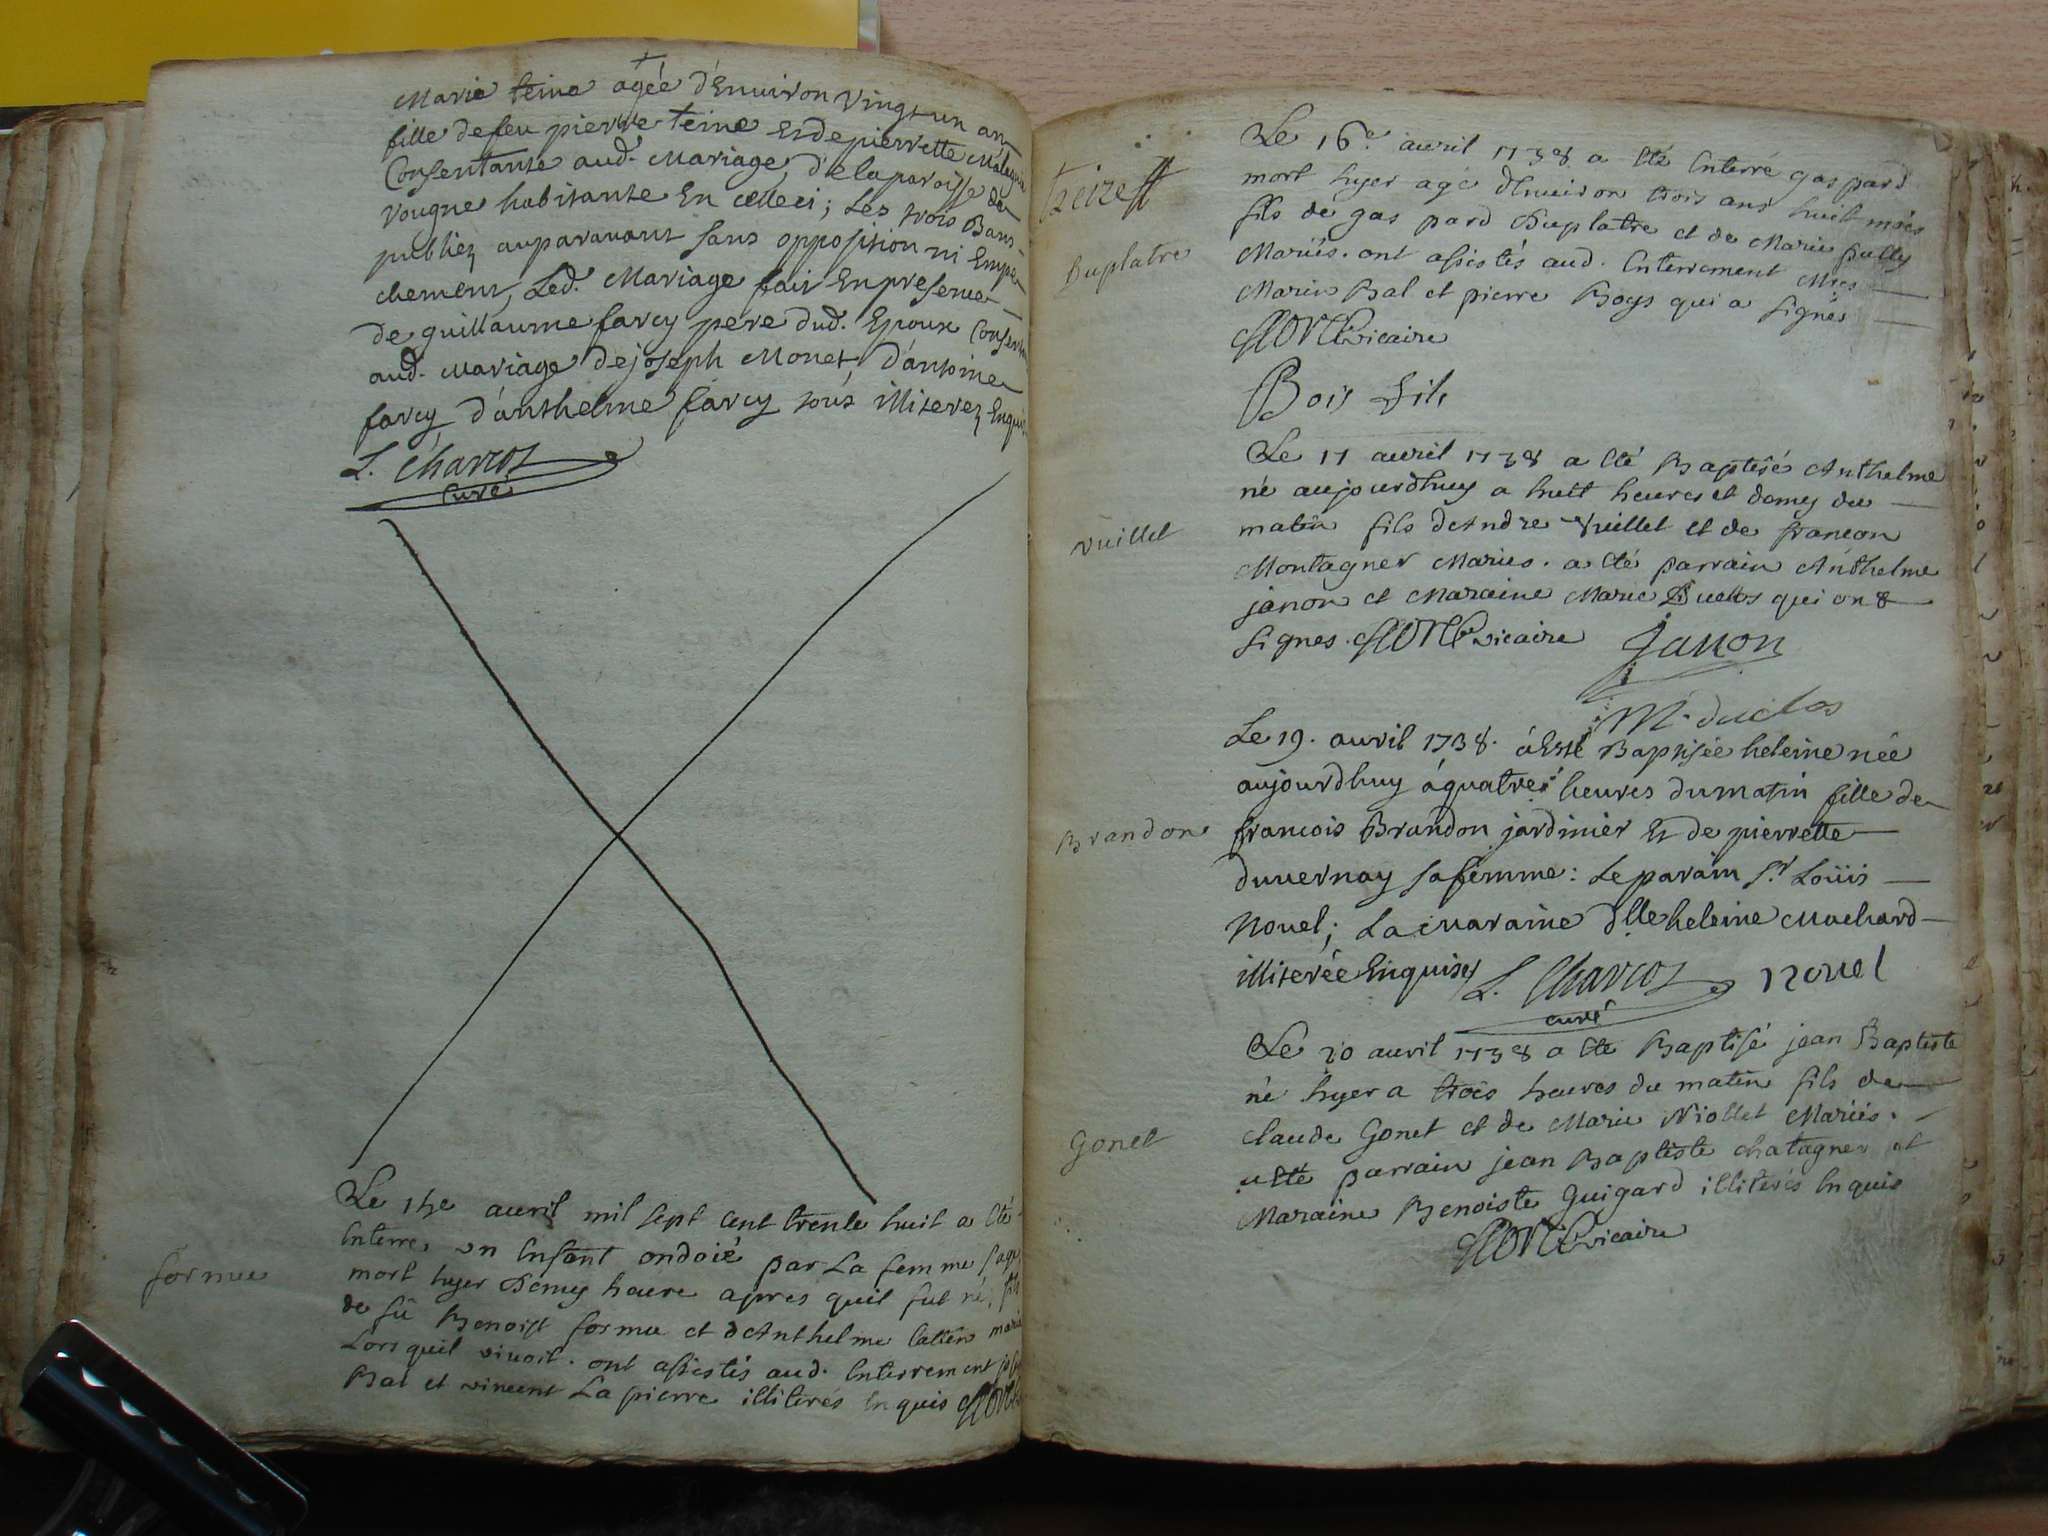 Marie teine agée d'Enuiron Vingt un an
fille defeu pierre teine Et de pierrette
Consentante aud. Mariage, de la paroisse de
Vougne habitante En celleci; Les trois Bans
publiez auparavant sans opposition ni Empe-
chement, Led. Mariage fait En presence
de guillaume farcy pere dud. Epoux
aud. Mariage de joseph Monet, d'antoine
farcy d'anthelme farcy tous illiterez
L. Charcot
curé
formue
Le avril mil sept cent trente huit a été
Enterré un Enfant ondoié par La femme
mort hyer Demy heure apres quil fut né, fils
de fû Benoist formue et d'Anthelme
Lors quil vivoit. ont assistés aud. Enterrement
Bal et vincent La pierre illiterés Enquis
treize
Duplatre
Le 16e avril 1738 a été Enterré gaspard
mort hyer agé d'Enuiron trois ans huit mois
fils de gaspard Duplatre et de Marie
Mariés. ont assistés aud. Enterrement
Marin Bal et pierre Boys qui a signés
vicaire
Bois fils
Vuillet
Le 17 avril 1738 a été Baptisé Anthelme
né aujourdhuy a huit heures et demy du
matin fils d'Andre Vuillet et de françon
Montagner Mariés. a été parrain Anthelme
janon et Maraine Marie Duclos qui ont
signes. vicaire Janon
M. duclos
Brandon
Le 19. avril 1738. á Esté Baptisée heleine née
aujourdhuy á quatre heures du matin fille de
francois Brandon jardinier Et de pierrette
duvernay sa femme: Le parain Sr. Loüis
Nouel; La Maraine dlle heleine Machard
illiterée Enquise L. Charcot Nouel
curé
Gonet
Le 20 avril 1738 a été Baptisé jean Baptiste
né hyer a trois heures du matin fils de
claude Gonet et de Marie Niollet Mariés.
a été parrain jean Baptiste chatagner et
Maraine Benoiste Guigard illiterés Enquis
vicaire